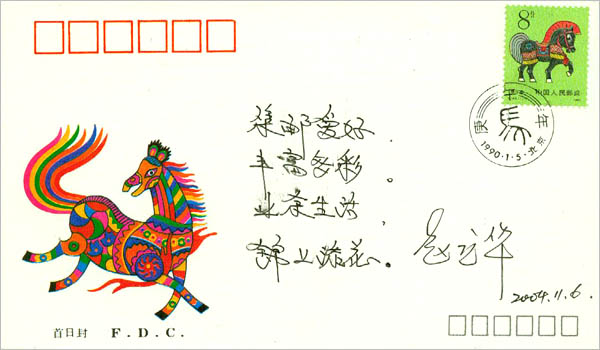 8分
中国人民邮政
庚午年
1990·1·5·北京
集邮爱好
丰富多彩。
业余生活
锦上添花。
2004.11.6.
首日封 F.D.C.